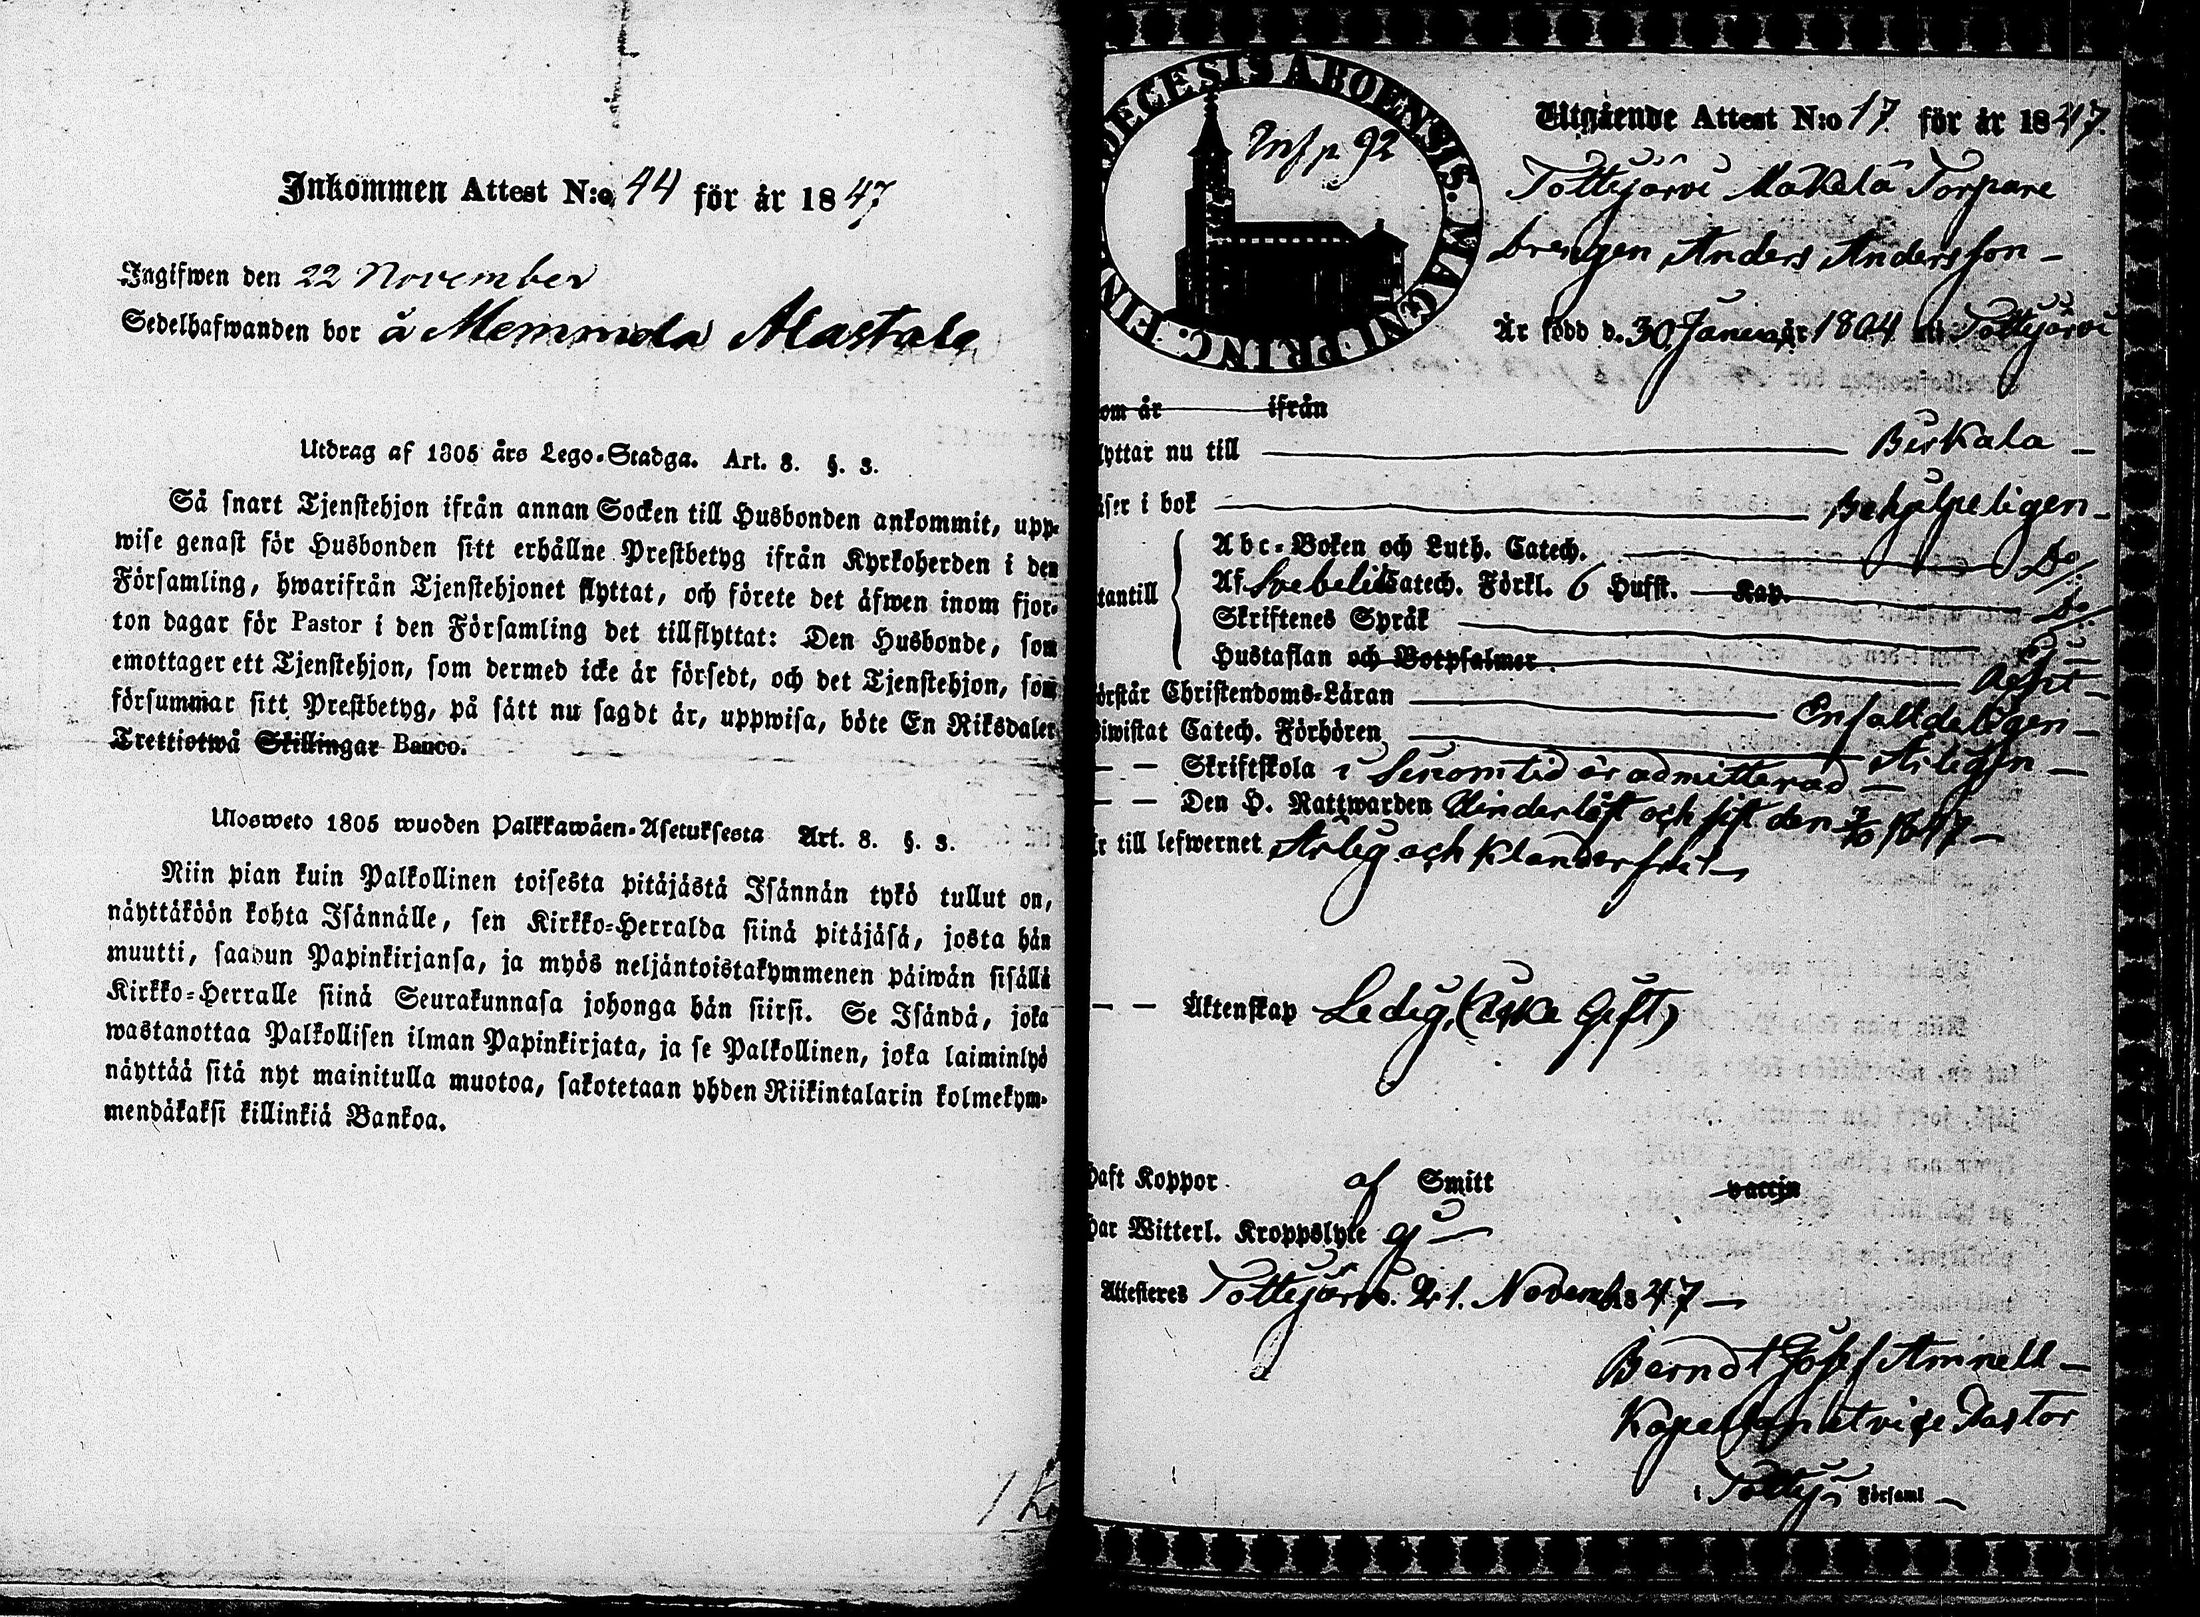 Inkommen Attest N:o 44 för år 1847
Ingifwen den 22 November
Sedelhafwanden bor å Memmola Alastalo
Utdrag af 1805 års Lego-Stadga. Art. 8. §. 3.
Så snart Tjenstehjon ifrån annan Socken till Husbonden ankommit, upp-
wise genast för Husbonden sitt erhållne Prestbetyg ifrån Kyrkoherden i den
Församling, hwarifrån Tjenstehjonet flyttat, och förete det äfwen inom fjor-
ton dagar för Pastor i den Församling det tillflyttat: Den Husbonde, som
emottager ett Tjenstehjon, som dermed icke är försedt, och det Tjenstehjon, som
försummar sitt Prestbetyg, på sätt nu sagdt är, uppwisa, böte En Riksdaler
Trettiotwå Skillingar Banco.
Ulosweto 1805 wuoden Palkkawäen-Asetuksesta Art. 8. §. 3.
Niin pian kuin Palkollinen toisesta pitäjästä Isännän tykö tullut on,
näyttäköön kohta Isännälle, sen Kirkko-Herralda siinä pitäjäsä, josta hän
muutti, saadun Papinkirjansa, ja myös neljäntoistakymmenen päiwän sisällä
Kirkko-Herralle siinä Seurakunnasa johonga hän siirsi. Se Isändä, joka
wastanottaa Palkollisen ilman Papinkirjata, ja se Palkollinen, joka laiminlyö
näyttää sitä nyt mainitulla muotoa, sakotetaan yhden Riikintalarin kolmekym-
mendäkaksi killinkiä Bankoa.
DECESIS ABOENSIS. MAGNI PRINC. FIN
Inf p 92
Utgående Attest N:o 17. för år 1847.
Tottijärvi Mäkelä Torpare
Drengen Anders Andersson
Är född d. 30 Januar år 1804 uti Tottijärvi
om år ifrån
lyttar nu till Birkala
äser i bok Behjelpeligen
Abc-Boken och Luth. Catech. Do
tantill Af Svebelii Catech. Förkl. 6 Hufst. Kap. Do
Skriftenes Språk
Hustaflan och Botpsalmer
örstår Christendoms-Läran Enfaldeligen
iwistat Catech. Förhören Årligen
— — Skriftskola i sinom tid är admitterad
— — Den H. Nattwarden Vinderlöst och sist den 3/10 1847
r till lefwernet Ärlig och klanderfri
— — Äktenskap Ledig, (Icke Gift)
haft Koppor af Smitt vaccin
har Witterl. Kroppslyte ej
Attesteres Tottijärvi. 21. Novemb. 1847
Berndt Josef Aminell
Kapellan etvice Pastor
i Tottij: Församl